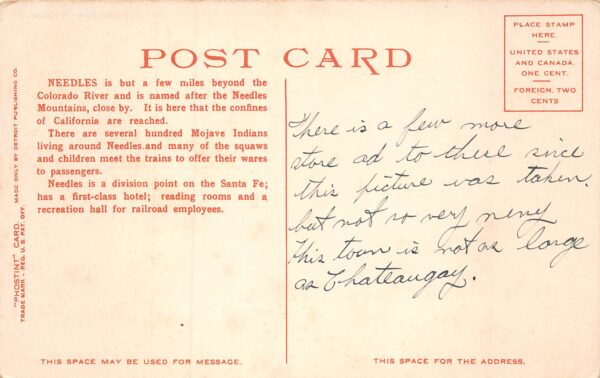 POST CARD
PLACE STAMP
HERE.
UNITED STATES
AND CANADA.
ONE CENT.
FOREIGN, TWO
CENTS
NEEDLES is but a few miles beyond the
Colorado River and is named after the Needles
Mountains, close by. It is here that the confines
of California are reached.
There are several hundred Mojave Indians
living around Needles.and many of the squaws
and children meet the trains to offer their wares
to passengers.
Needles is a division point on the Santa Fe;
has a first-class hotel; reading rooms and a
recreation hall for railroad employees.
There is a few more
store ad to these since
this picture was taken.
but not so very meny
This town is not as large
as Chateaugay.
"PHOSTINT" CARD. MADE ONLY BY DETROIT PUBLISHING CO.
TRADE MARK - REG. U. S. PAT. OFF.
THIS SPACE MAY BE USED FOR MESSAGE.
THIS SPACE FOR THE ADDRESS.